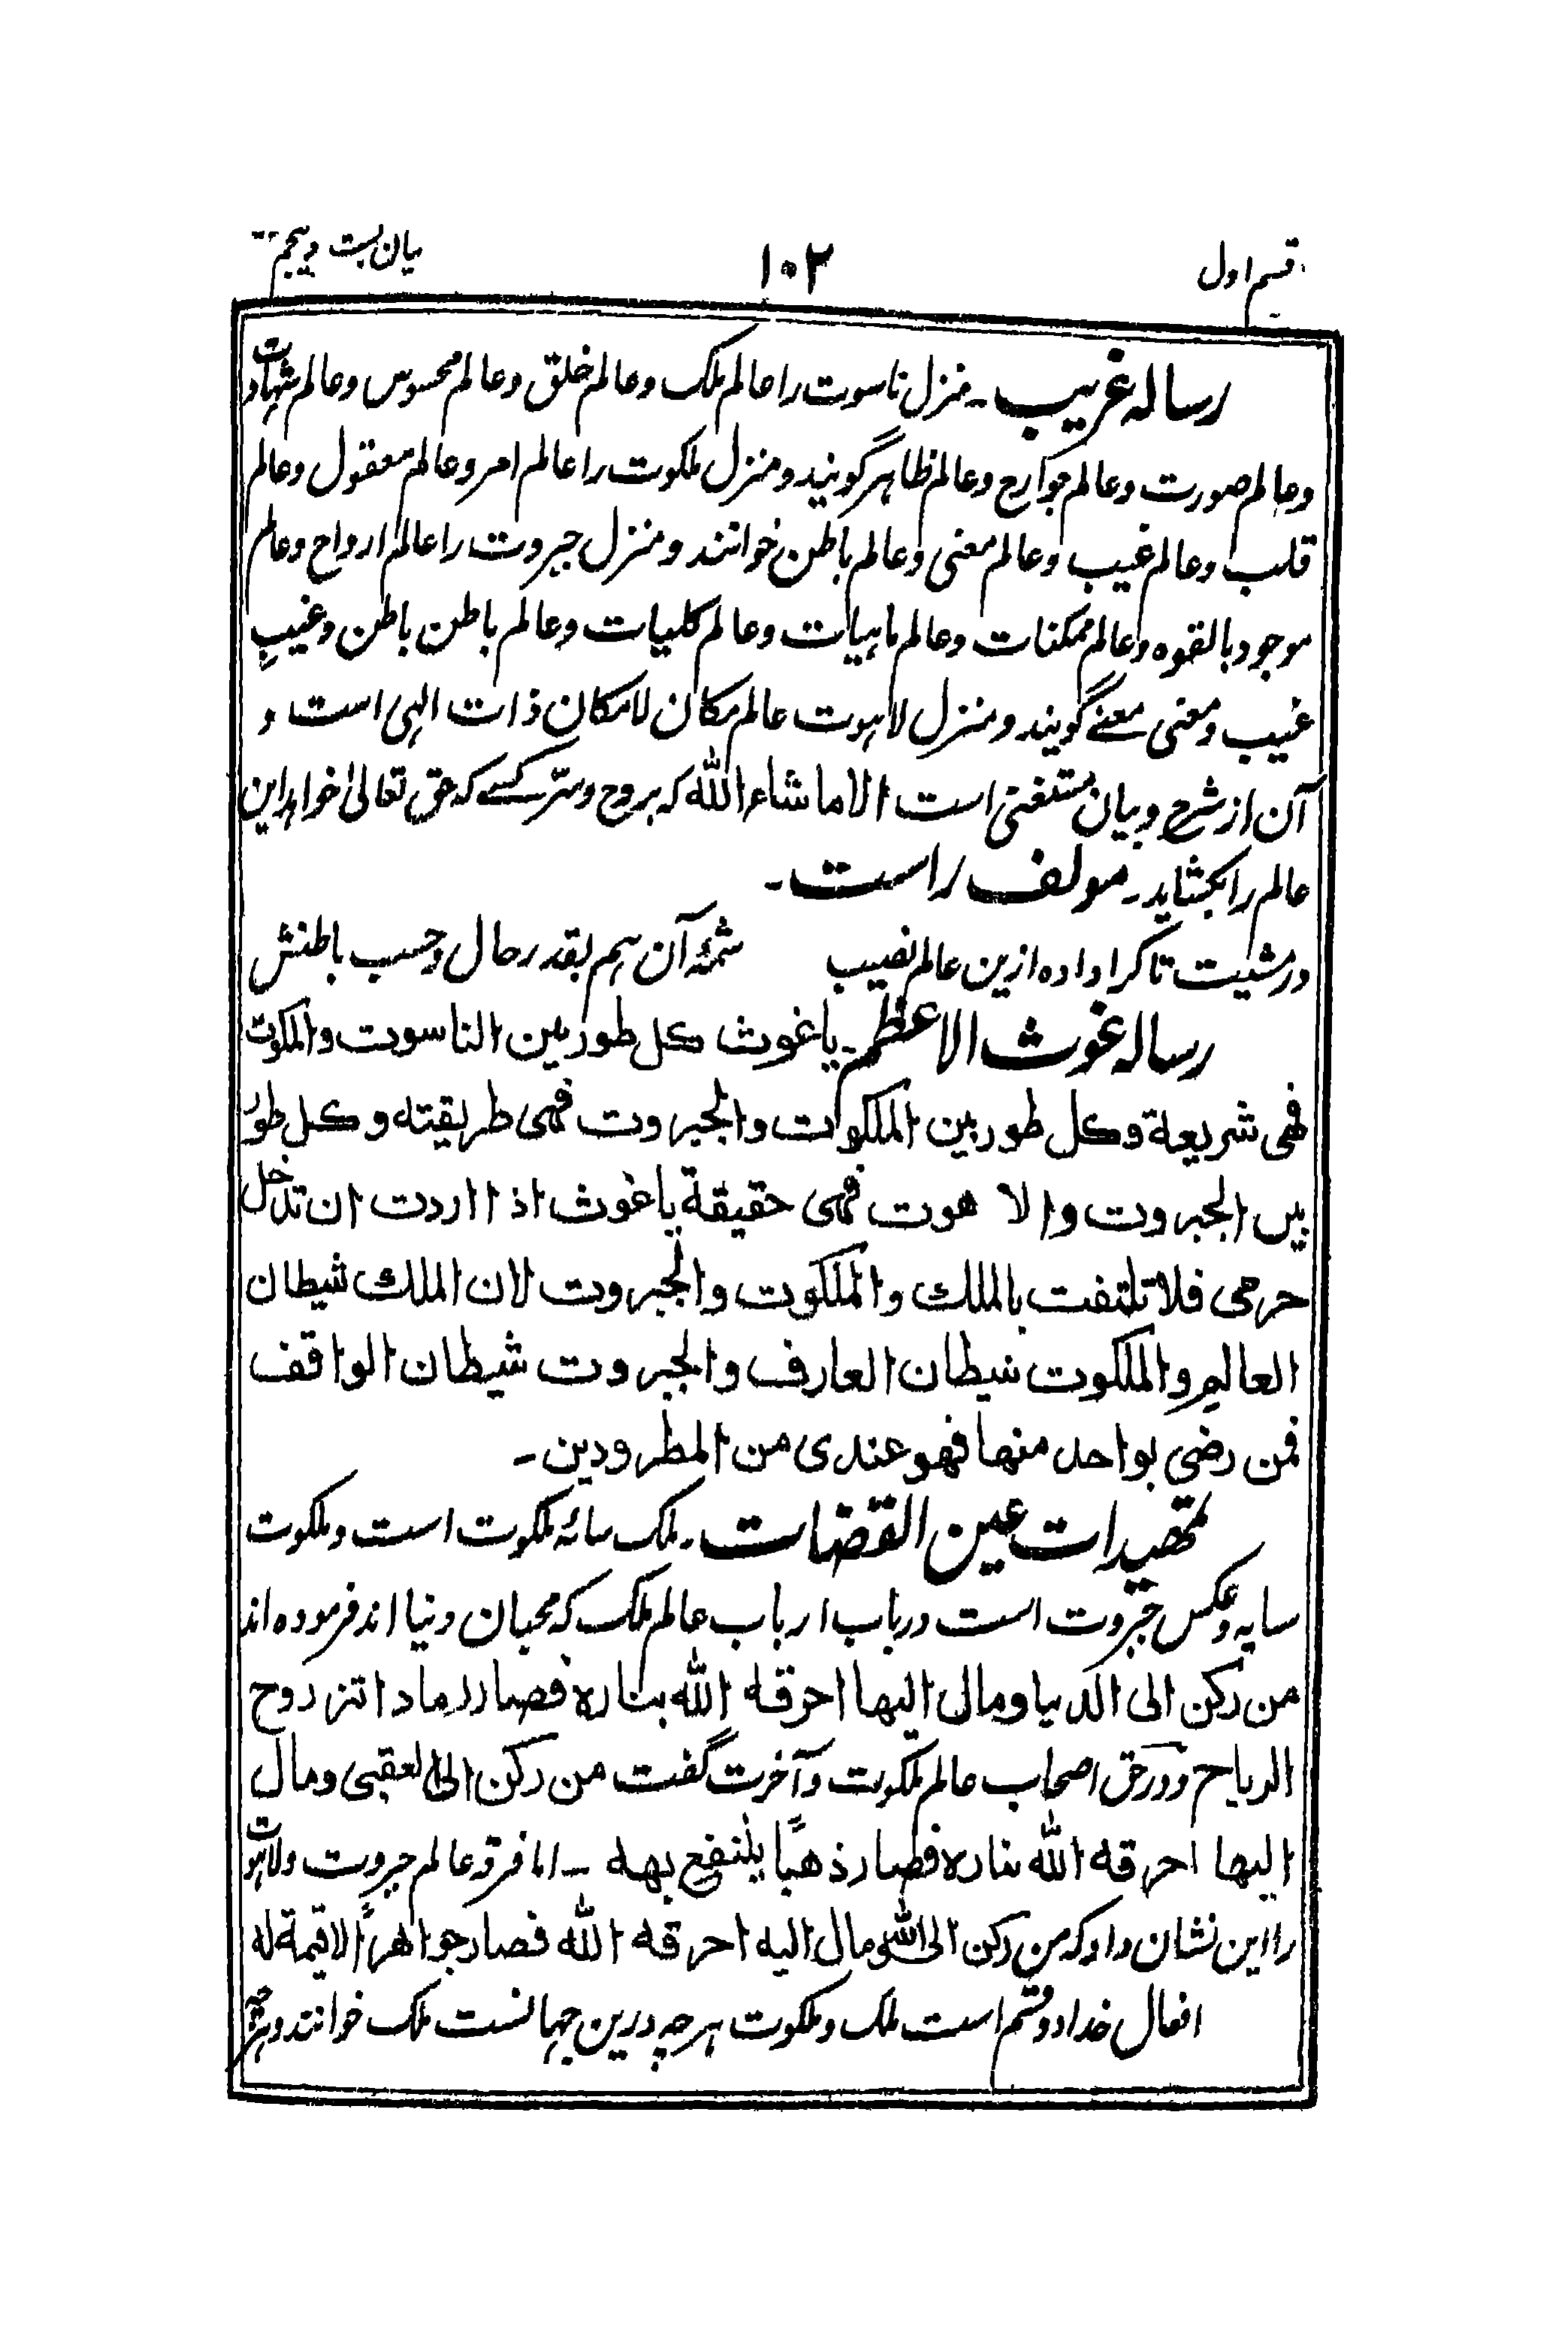 قسم اول
۱۰۲
بیان بست و پنجم
رساله غریب۔ منزل ناسوت را عالم ملک و عالم خلق و عالم محسوس و عالم شهادت
و عالم صورت و عالم جوارح و عالم ظاهر گویند و منزل ملکوت را عالم امر و عالم معقول و عالم
قلب و عالم غیب و عالم معنی و عالم باطن خوانند و منزل جبروت را عالم ارواح و عالم
موجود بالقوه و عالم ممکنات و عالم ماهیات و عالم کلیات و عالم باطن باطن و غیبِ
غیب و معنی معنے گویند و منزل لاهوت عالم مکان لامکان ذات الٰهی است و
آن از شرح و بیان مستغنی است الا ماشاء الله که بروح و سرّ کسے که حق تعالیٰ خواهد این
عالم را بکشاید۔ مولف راست۔
در مشیت تا کرا داده ازین عالم نصیب شمهٔ آن هم بقدر حال و حسب باطنش
رساله غوث الاعظم۔ یاغوث کل طور بین الناسوت والملکوت
فهی شریعة وکل طور بین الملکوات والجبروت فهی طریقته وکل طور
بین الجبروت والا هوت فهی حقیقة یاغوث اذا اردت ان تدخل
حرمی فلا تلتفت بالملک والملکوت والجبروت لان الملک شیطان
العالم والملکوت شیطان العارف والجبروت شیطان الواقف
فمن رضی بواحد منها فهو عندی من المطرودین۔
تمهیدات عین القضات۔ ملک سائه ملکوت است و ملکوت
سایه و عکس جبروت است در باب ارباب عالم ملک که محبان دنیا اند فرموده اند
من رکن الی الدنیا ومال الیها احرقه الله بناره فصار رمادا تنز روح
الریاح و در حق اصحاب عالم ملکوت و آخرت گفت من رکن الی العقبی ومال
الیها احرقه الله بناره فصار ذهباً ینتفع بهه ۔ اما فرق عالم جبروت و لاهوت
را این نشان داد که من رکن الی الله ومال الیه احرقه الله فصار جواهراً لاقیمة له
افعال خدا دو قسم است ملک و ملکوت هر چه درین جهانست ملک خوانند و هرچه